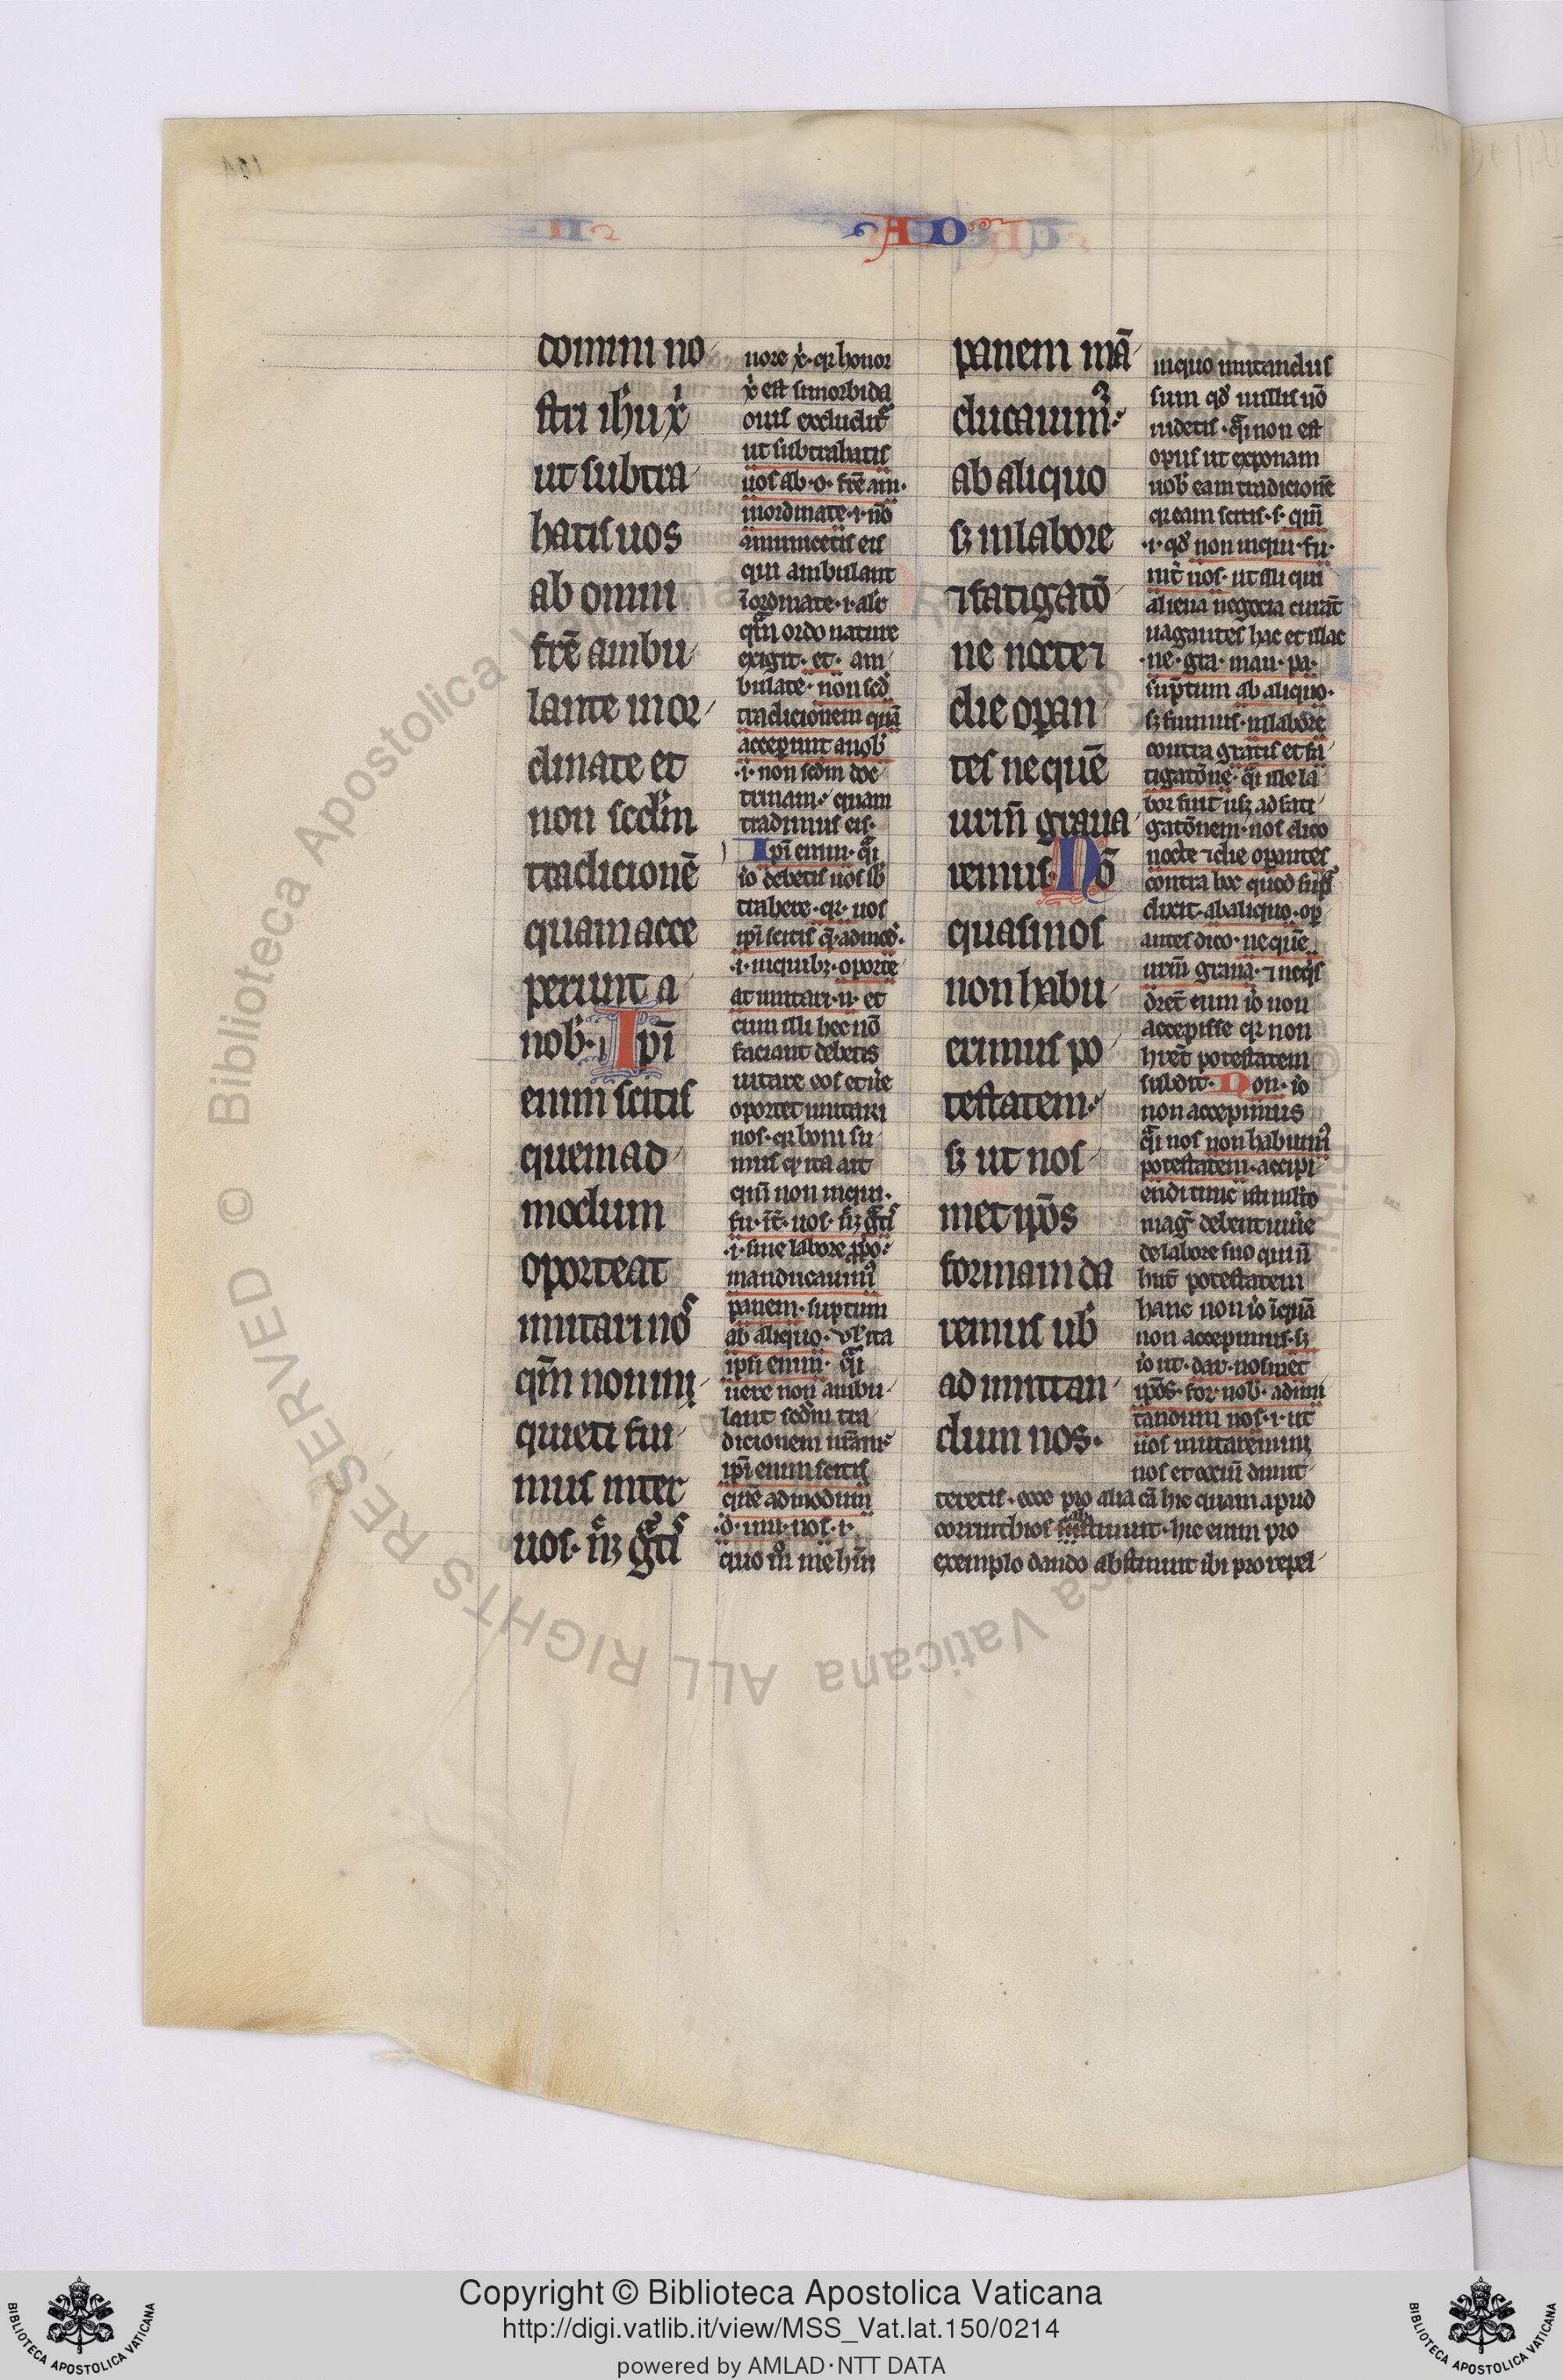 AD
domini no
stri ihu xͥ
ut subtra
hatis uos
ab omni
fr̄e ambu
lante inor
dinate et
non scd'm
tradicionē
quam acce
perunt a
nob'. Ip̄i
enim scitis
quemad
modum
oporteat
imitari nos
qm̄ non in
quieti fui
mus inter
uos. neqȝ gͣtis
uore xͥ. qr honor
xͥ est si morbida
ouis excludit᷑
ut subtrahatis
uos ab. o. fr̄e am.
inordinate. i. nō
cōmunicetis eis
qui ambulant
īordinate. i. alit'
qͣm ordo nature
exigit. et. am
bulate. non scd'
tradicionem quā
acceperunt a nob'
.i. non scdm doc
trinam quam
tradimus eis.
Ip̄i enim. qͣi
iō debetis uos sub
trahere. qr. uos
ip̄i scitis q̄. admod'.
.i. in quibȝ. oporte
at imitari. n. et
cum illi hec nō
faciant debetis
uitare eos et uere
oportet imitari
nos. qr boni su
mus qr ita ait
qm̄ non inqui.
fu. īt̄. uos. neqȝ gͣtis
.i. sine labore pp̄o
manducauim᷒
panem. sumptum
ab aliquo. Vl' ita
ipsi enim. qͣi
uere non ambu
lant scdm tra
dicionem nr̄am
ip̄i enim scitis
quē admodum
.o. imi. nos. i.
quo m̊ me hītū
panem mā
ducauim᷒
ab aliquo
sȝ in labore
⁊ fatigatōe
ne nocte ⁊
die operan
tes ne quē
ur̄m graua
remus. Nō
quasi nos
non habu
erimus po
testatem
sȝ ut nos
met ip̄os
formam da
remus uob'
ad imitan
dum nos.
in quo imitandus
sum qd' nullus nō
uidetis. qͣi non est
opus ut exponam
uob' eam tradicionē
qr eam scitis. s. qm̄
.i. qd' non inqui. fu.
int̄ uos. ut illi qui
aliena negocia curāt
uagantes hac et illac
.ne. gra. man. pa.
sumptum ab aliquo.
sȝ fuimus. in labore
contra gratis et fa
tigatōne. qͣi ille la
bor fuit usqȝ ad fati
gatōnem. nos dico
nocte ⁊ die operantes
contra hoc quod supͣ
dixit. ab aliquo. op
antes dico. ne quē
ur̄m graua. ⁊ ne qis
diceret eum iō non
accepisse qr non
hr̄et potestatem
subdit. Non. iō
non accepimus
qͣi nos non habuim᷒
potestatem. accipi
endi tunc isti multo
mag᷒ debent uiuere
de labore suo qui n̄
hn̄t potestatem
hanc non iō inquā
non accepimus. sȝ
iō ut. dar. nosmet
ip̄os. for. uob'. ad imi
tandum nos. i. ut
uos imitaremini
nos et ocium dimit
teretis. ecce pro alia cā hic quam apud
corinthios abstinuit. hic enim pro
exemplo dando abstinuit ibi pro repel
Copyright © Biblioteca Apostolica Vaticana
http://digi.vatlib.it/view/MSS_Vat.lat.150/0214
powered by AMLAD·NTT DATA
BIBLIOTECA APOSTOLICA VATICANA
BIBLIOTECA APOSTOLICA VATICANA
© Biblioteca Apostolica Vaticana ALL RIGHTS RESERVED